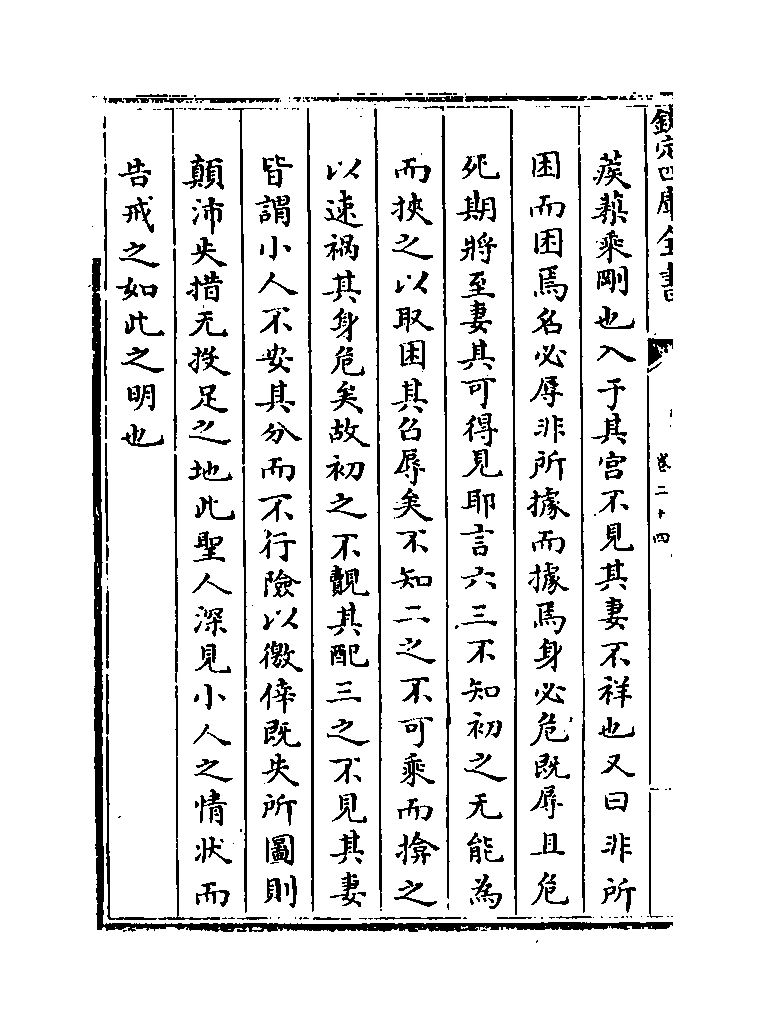 欽定四庫全書
卷二十四
蒺蔾乘剛也入于其宮不見其妻不祥也又曰非所
困而困焉名必辱非所據而據焉身必危既辱且危
死期將至妻其可得見耶言六三不知初之无能為
而挾之以取困其名辱矣不知二之不可乘而揜之
以速禍其身危矣故初之不覿其配三之不見其妻
皆謂小人不安其分而不行險以徼倖既失所圖則
顛沛失措无投足之地此聖人深見小人之情狀而
告戒之如此之明也